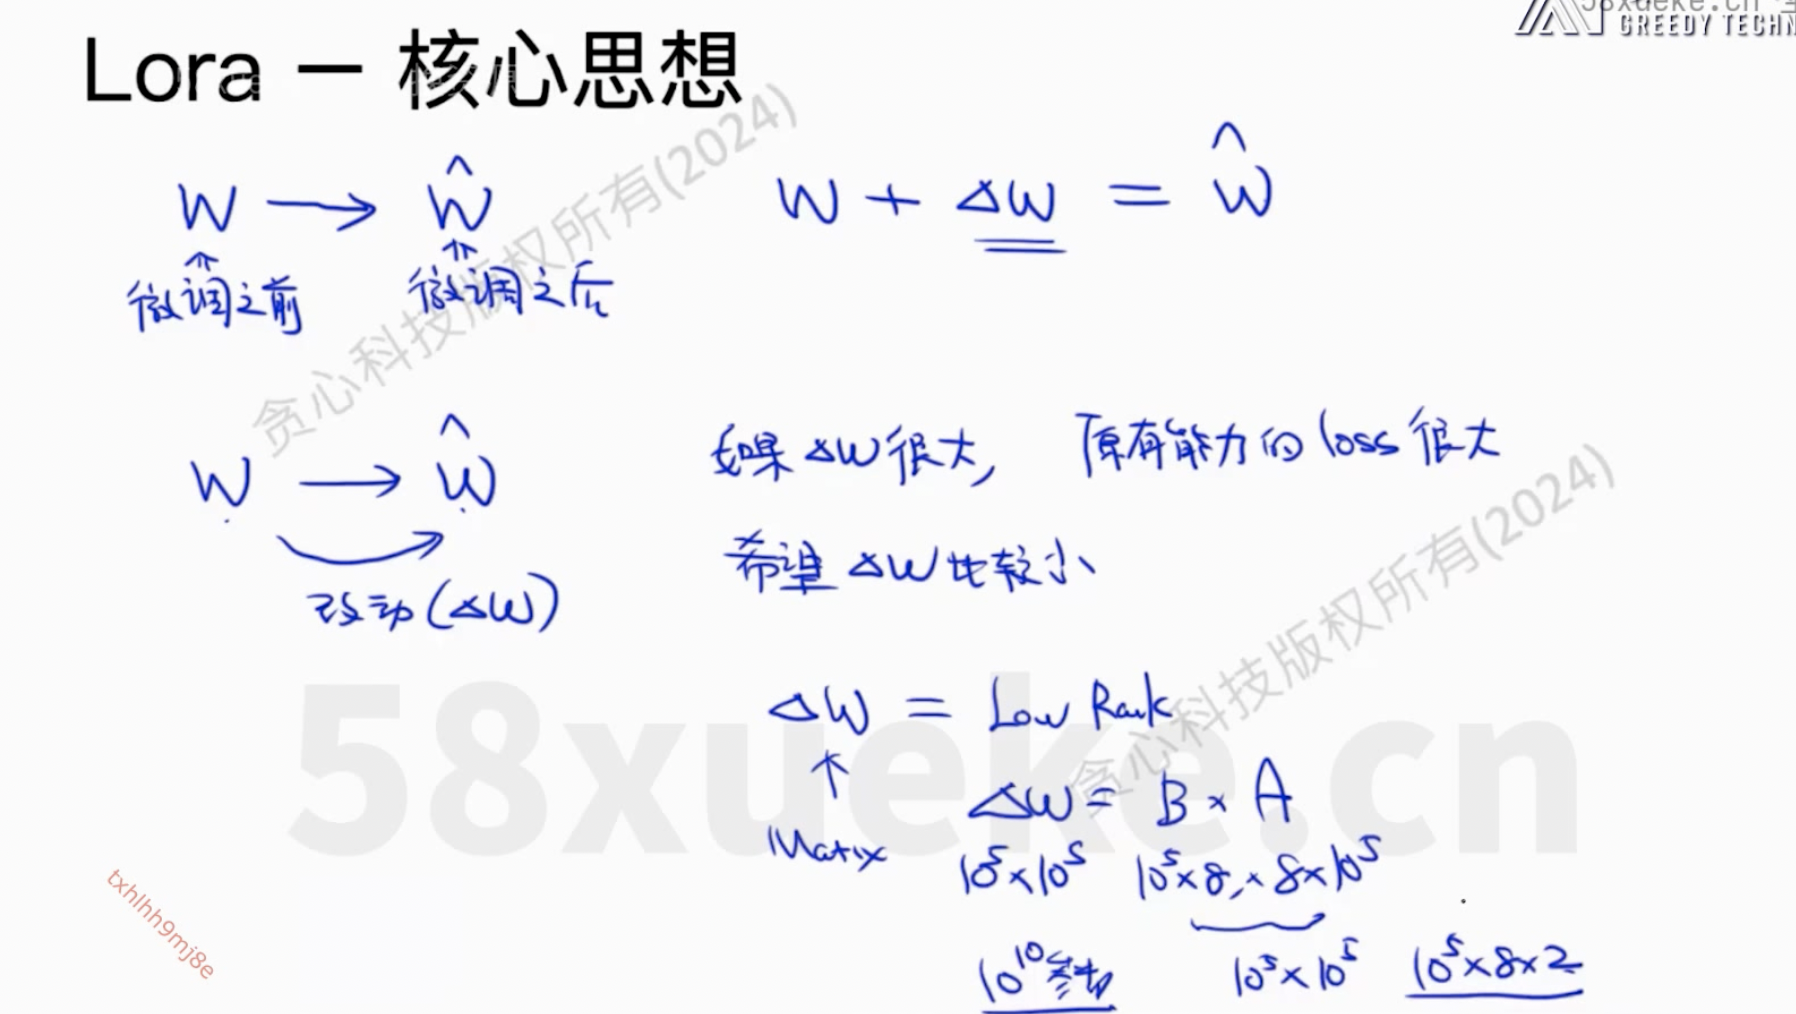 58xueke.cn
GREEDY TECHN
Lora — 核心思想
W → Ŵ
微调之前
微调之后
W + ΔW = Ŵ
W → Ŵ
改动(ΔW)
如果 ΔW 很大, 原有能力的 loss 很大
希望 ΔW 比较小
ΔW = Low Rank
↑
Matrix
ΔW = B × A
10⁵×10⁵ 10⁵×8, × 8×10⁵
10¹⁰参数
10⁵×10⁵
10⁵×8×2
贪心科技版权所有(2024)
贪心科技版权所有(2024)
58xueke.cn
txhlhh9mj8e